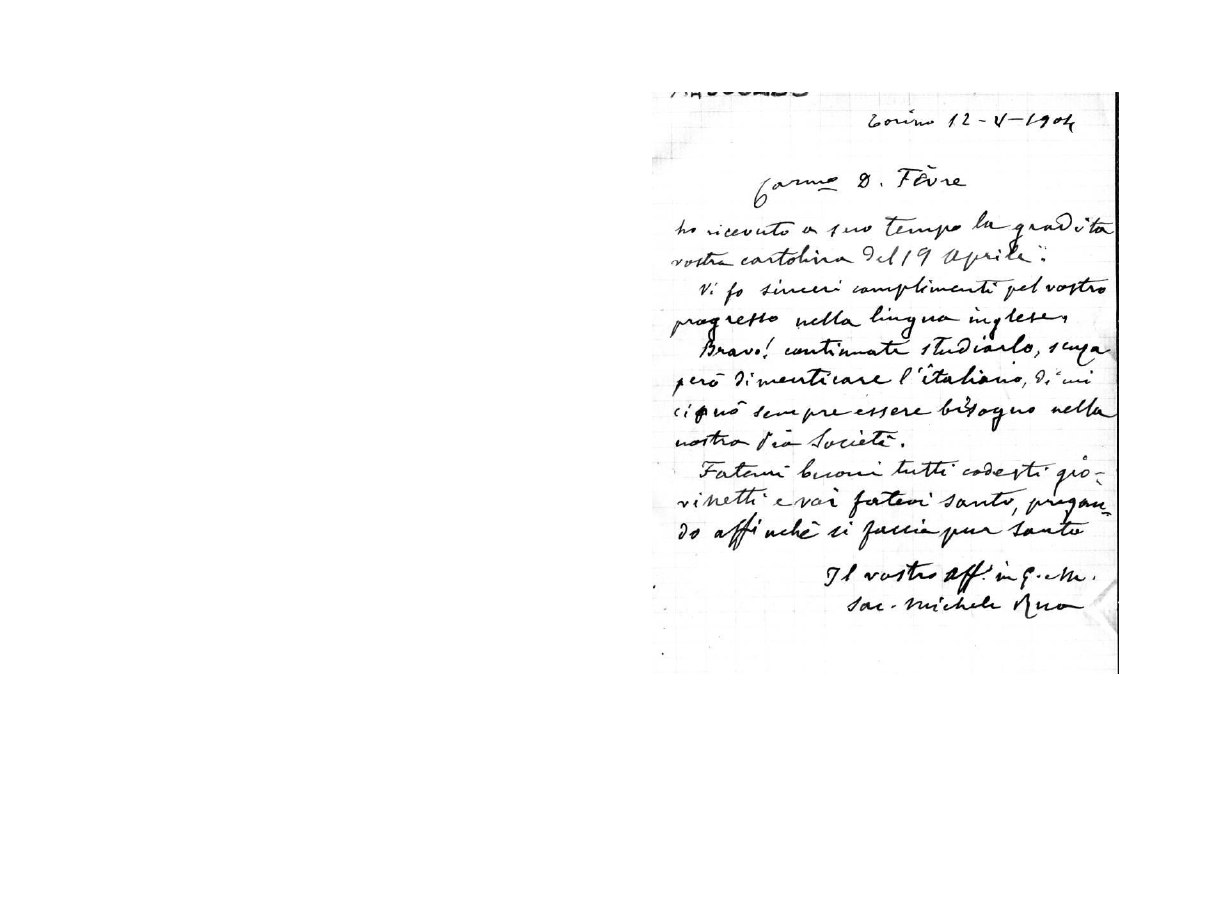 Torino 12-V-1904
Carmo D. Fèvre
ho ricevuto a suo tempo la gradita
vostra cartolina del 19 Aprile.
Vi fo sinceri complimenti pel vostro
progresso nella lingua inglese.
Bravo! continuate studiarlo, senza
però dimenticare l'italiano, di cui
ci può sempre essere bisogno nella
nostra Pia Società.
Fatemi buoni tutti codesti gio-
vinetti e voi fatevi santo, pregan-
do affinchè si faccia pur santo
Il vostro aff. in G. e M.
Sac. Michele Rua